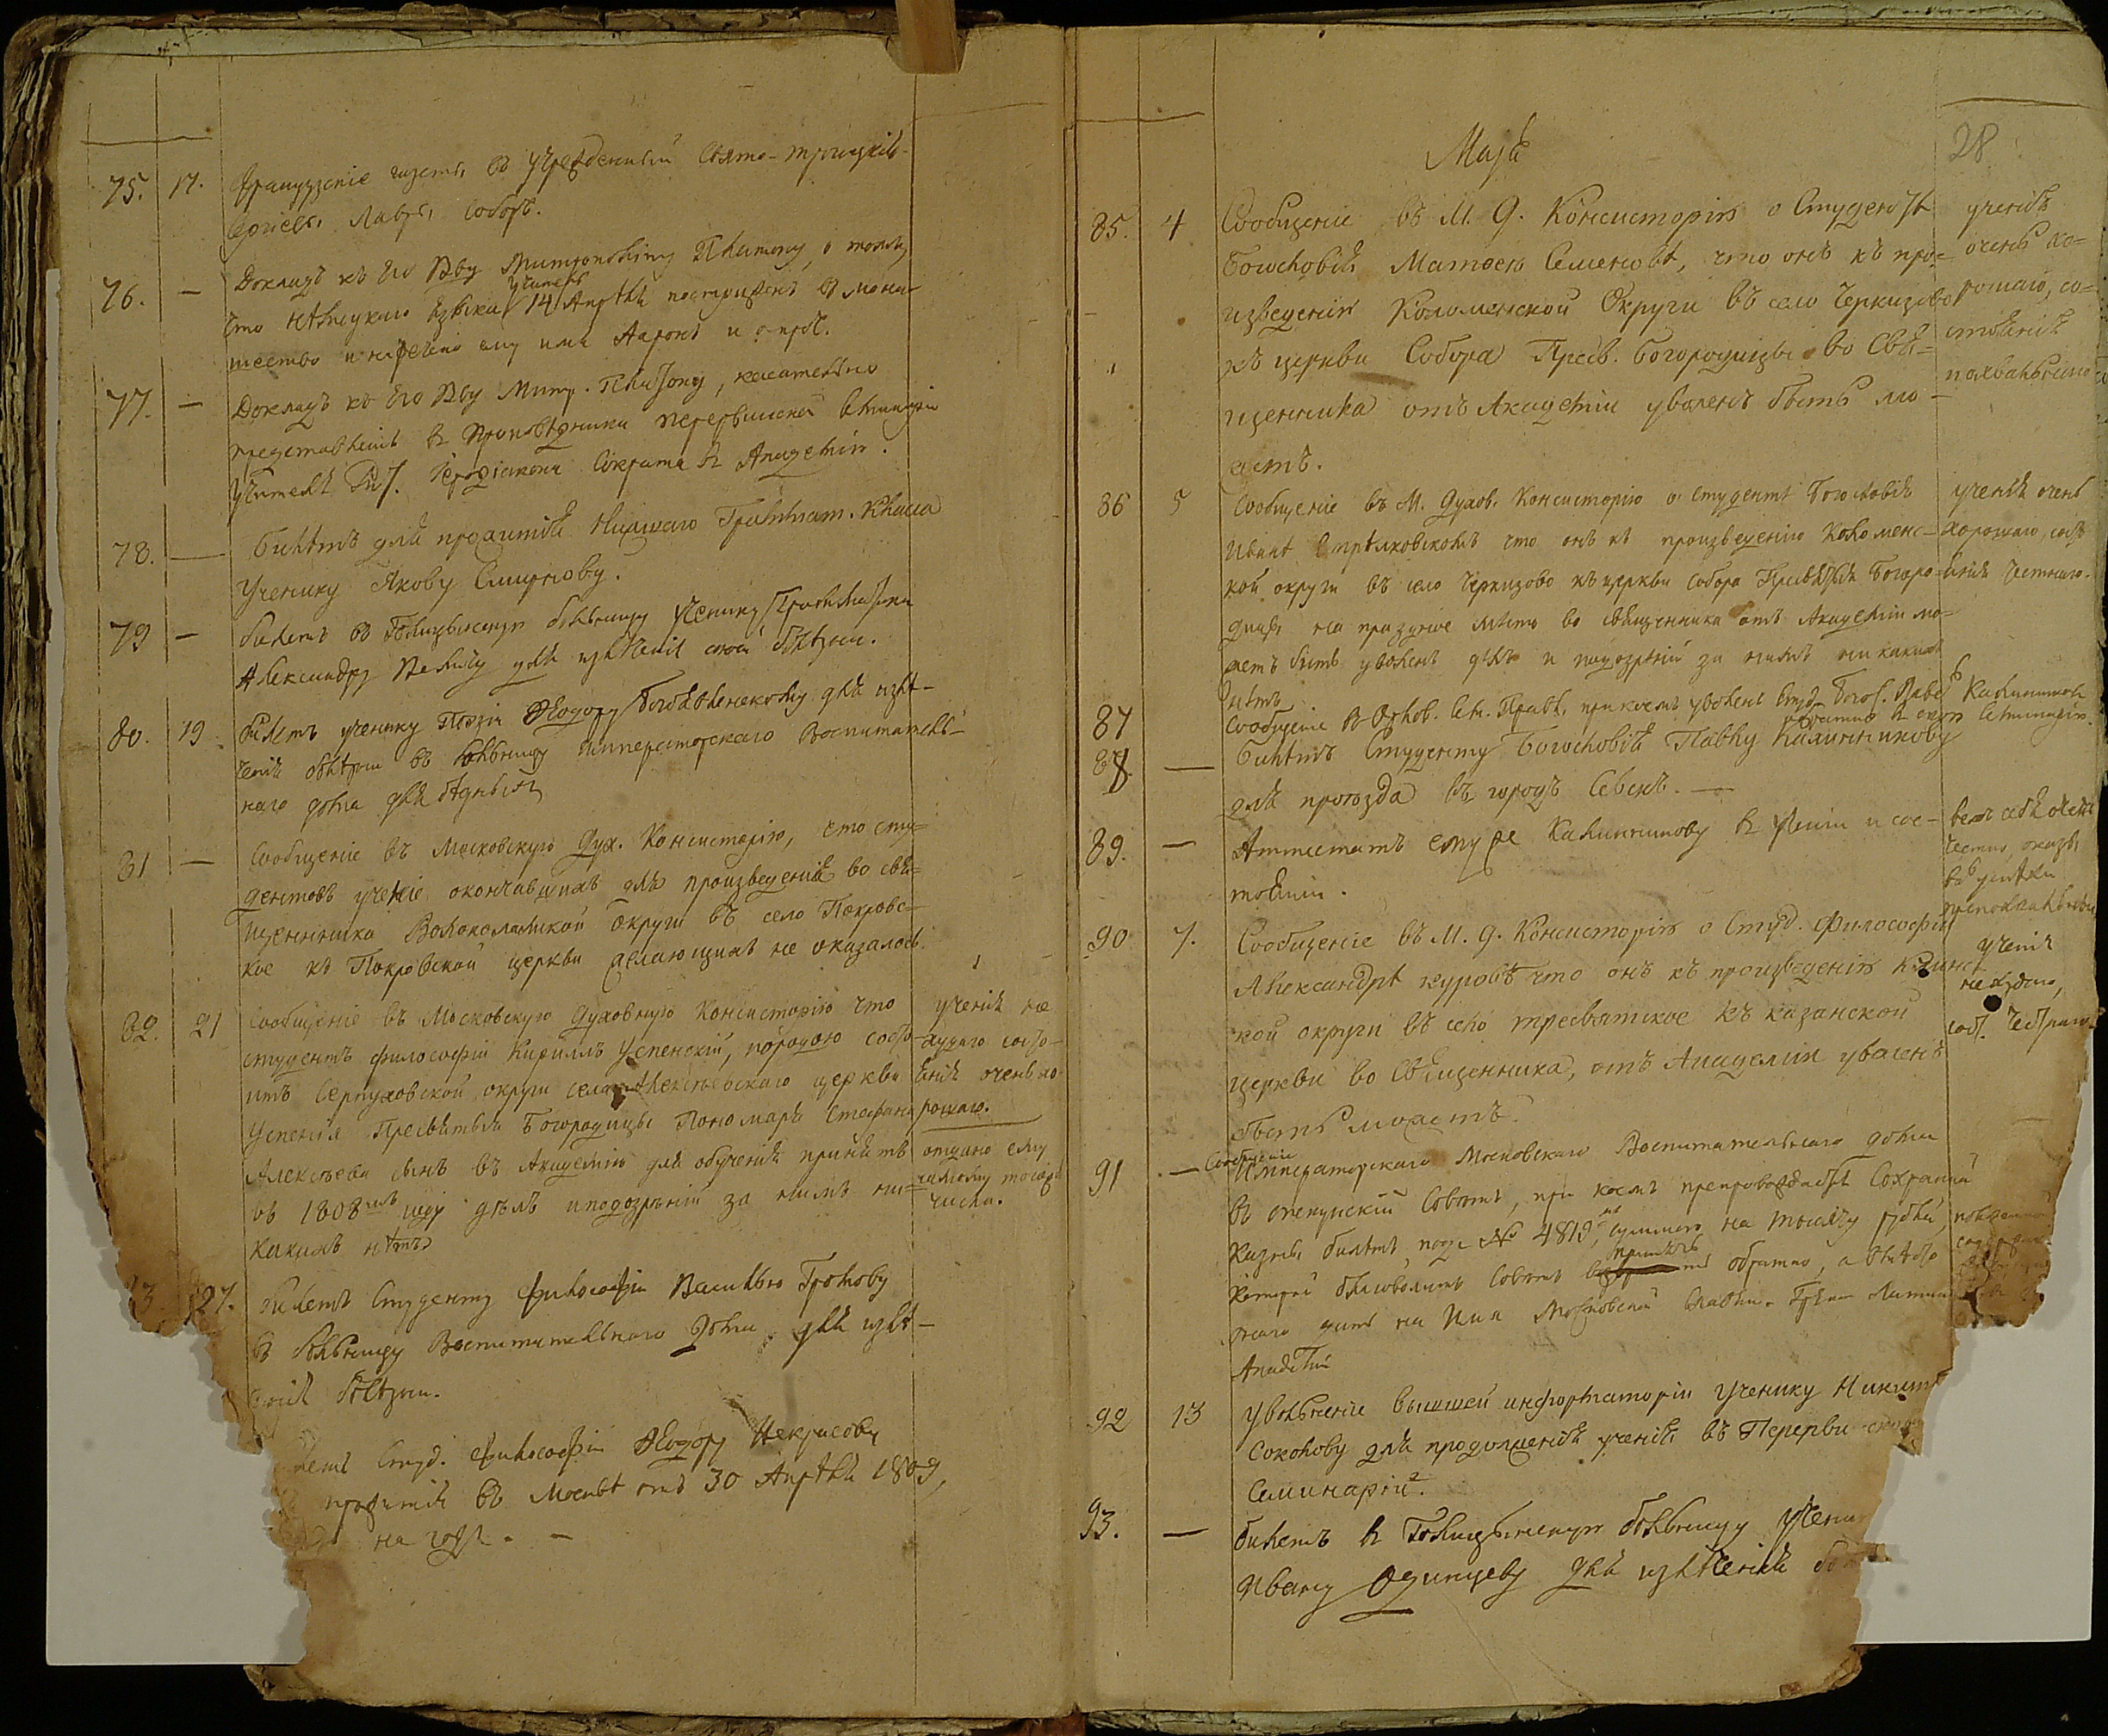 75. 17. Французскіе газеты въ Учрежденный Свято-троицкія
Сергіевы Лавры Соборъ.
76. — Докладъ къ Его Пву Митрополиту Платону, о томъ,
что нѣмецкаго языка учитель 14 Апрѣля постриженъ въ мона-
шество и наречено ему имя Ааронъ и о проч.
77. — Докладъ къ Его Пву Митр. Платону, касательно
представленія въ Проповѣдники перервинской Семинаріи
Учителя Іеродіакона Сократа въ Академію.
78. — Билѣтъ для прожитія Низшаго Грамматт. Класса
Ученику Якову Смирнову.
79 — билетъ въ Голицынскую больницу Ученику
Александру для излѣченія своей болѣзни.
80. 19. билетъ ученику Поэзіи Ѳеодору Богоявленскому для излѣ-
ченія болѣзни въ больницу Императорскаго Воспитатель-
наго дома для бѣдныхъ
81 — Сообщеніе въ Московскую Дух. Консисторію, что сту-
дентовъ ученіе окончавшихъ для произведенія во свя-
щенника Волоколамской Округи въ село Покровс-
кое къ Покровской церкви желающихъ не оказалось
82. 21 Сообщеніе въ Московскую Духовную Консисторію что
студентъ философіи Кириллъ Успенскій, породою состо-
итъ Серпуховской округи села Алексѣевскаго церкви
Успенія Пресвятыя Богородицы Пономаря Стефана
Алексѣева сынъ въ Академію для обученія принятъ
въ 1808мъ году дѣлъ и подозрѣній за нимъ ни-
какихъ нѣтъ
ученія не
худаго состо-
янія очень хо-
рошаго.
отдано ему
самому тогоже
числа.
3 27. билетъ Студенту философіи Василью Громову
въ больницу Воспитательнаго Дома для излѣ-
ченія болѣзни.
летъ Студ. философіи Ѳеодору Некрасову
прожитія въ Москвѣ отъ 30 Апрѣля 1809,
на годъ. —
28
Маія
85. 4 Сообщеніе въ М. Д. Консисторію о Студентѣ
Богословіи Матвеѣ Семеновѣ, что онъ къ про-
изведенію Коломенской Округи въ село Черкизово
къ церкви Собора Пресв. Богородицы во Свя-
щенника отъ Академіи уволенъ быть мо-
жетъ.
ученія
очень хо-
рошаго, со-
стоянія
похвальнаго
86 5 Сообщеніе въ М. Духов. Консисторію о студентѣ Богословіи
Иванѣ что онъ къ произведенію Коломенс-
кой округи въ село Черкизово къ церкви Собора Пресвятыя Богоро-
дицы на праздное мѣсто во священника отъ Академіи мо-
жетъ быть уволенъ дѣлъ и подозрѣній за нимъ никакихъ
нѣтъ
ученія очень
хорошаго, сост
янія честнаго.
87 Сообщеніе въ Сѣв. Прав. при коемъ уволенъ Студ. Богос. Павелъ Калинниковъ
обратно въ оную Семинарію.
88. — Билѣтъ Студенту Богословіи Павлу Калинникову
для проѣзда въ городъ Севскъ. —
89. — Аттестатъ ему же Калинникову въ ученіи и сос-
тояніи.
велъ себя очень
честно, оказы
валъ успѣхи
90. 7. Сообщеніе въ М. Д. Консисторію о Студ. Философіи
Александрѣ куровѣ что онъ къ произведенію Клинс-
кой округи въ село тресвятское къ казанской
церкви во Священника, отъ Академіи уволенъ
быть можетъ.
ученія
не худаго,
сост. честнаго.
91 — Сообщеніе Императорскаго Московскаго Воспитательнаго дома
въ опекунскій Совѣтъ, при коемъ препровождается Сохранной
Казны билѣтъ подъ № 4819мъ, на тысячу рублей,
который благоволитъ Совѣтъ принять обратно, а вмѣсто
онаго дать на Имя Московской Славяно-Греко-Латинской
Академіи
92 13 Увольненіе высшей информаторіи Ученику Никитѣ
Соколову для продолженія ученія въ Перервинскую
Семинарію.
93. — билетъ въ Голицынскую больницу Учени
Ивану Одинцеву для излѣченія бо